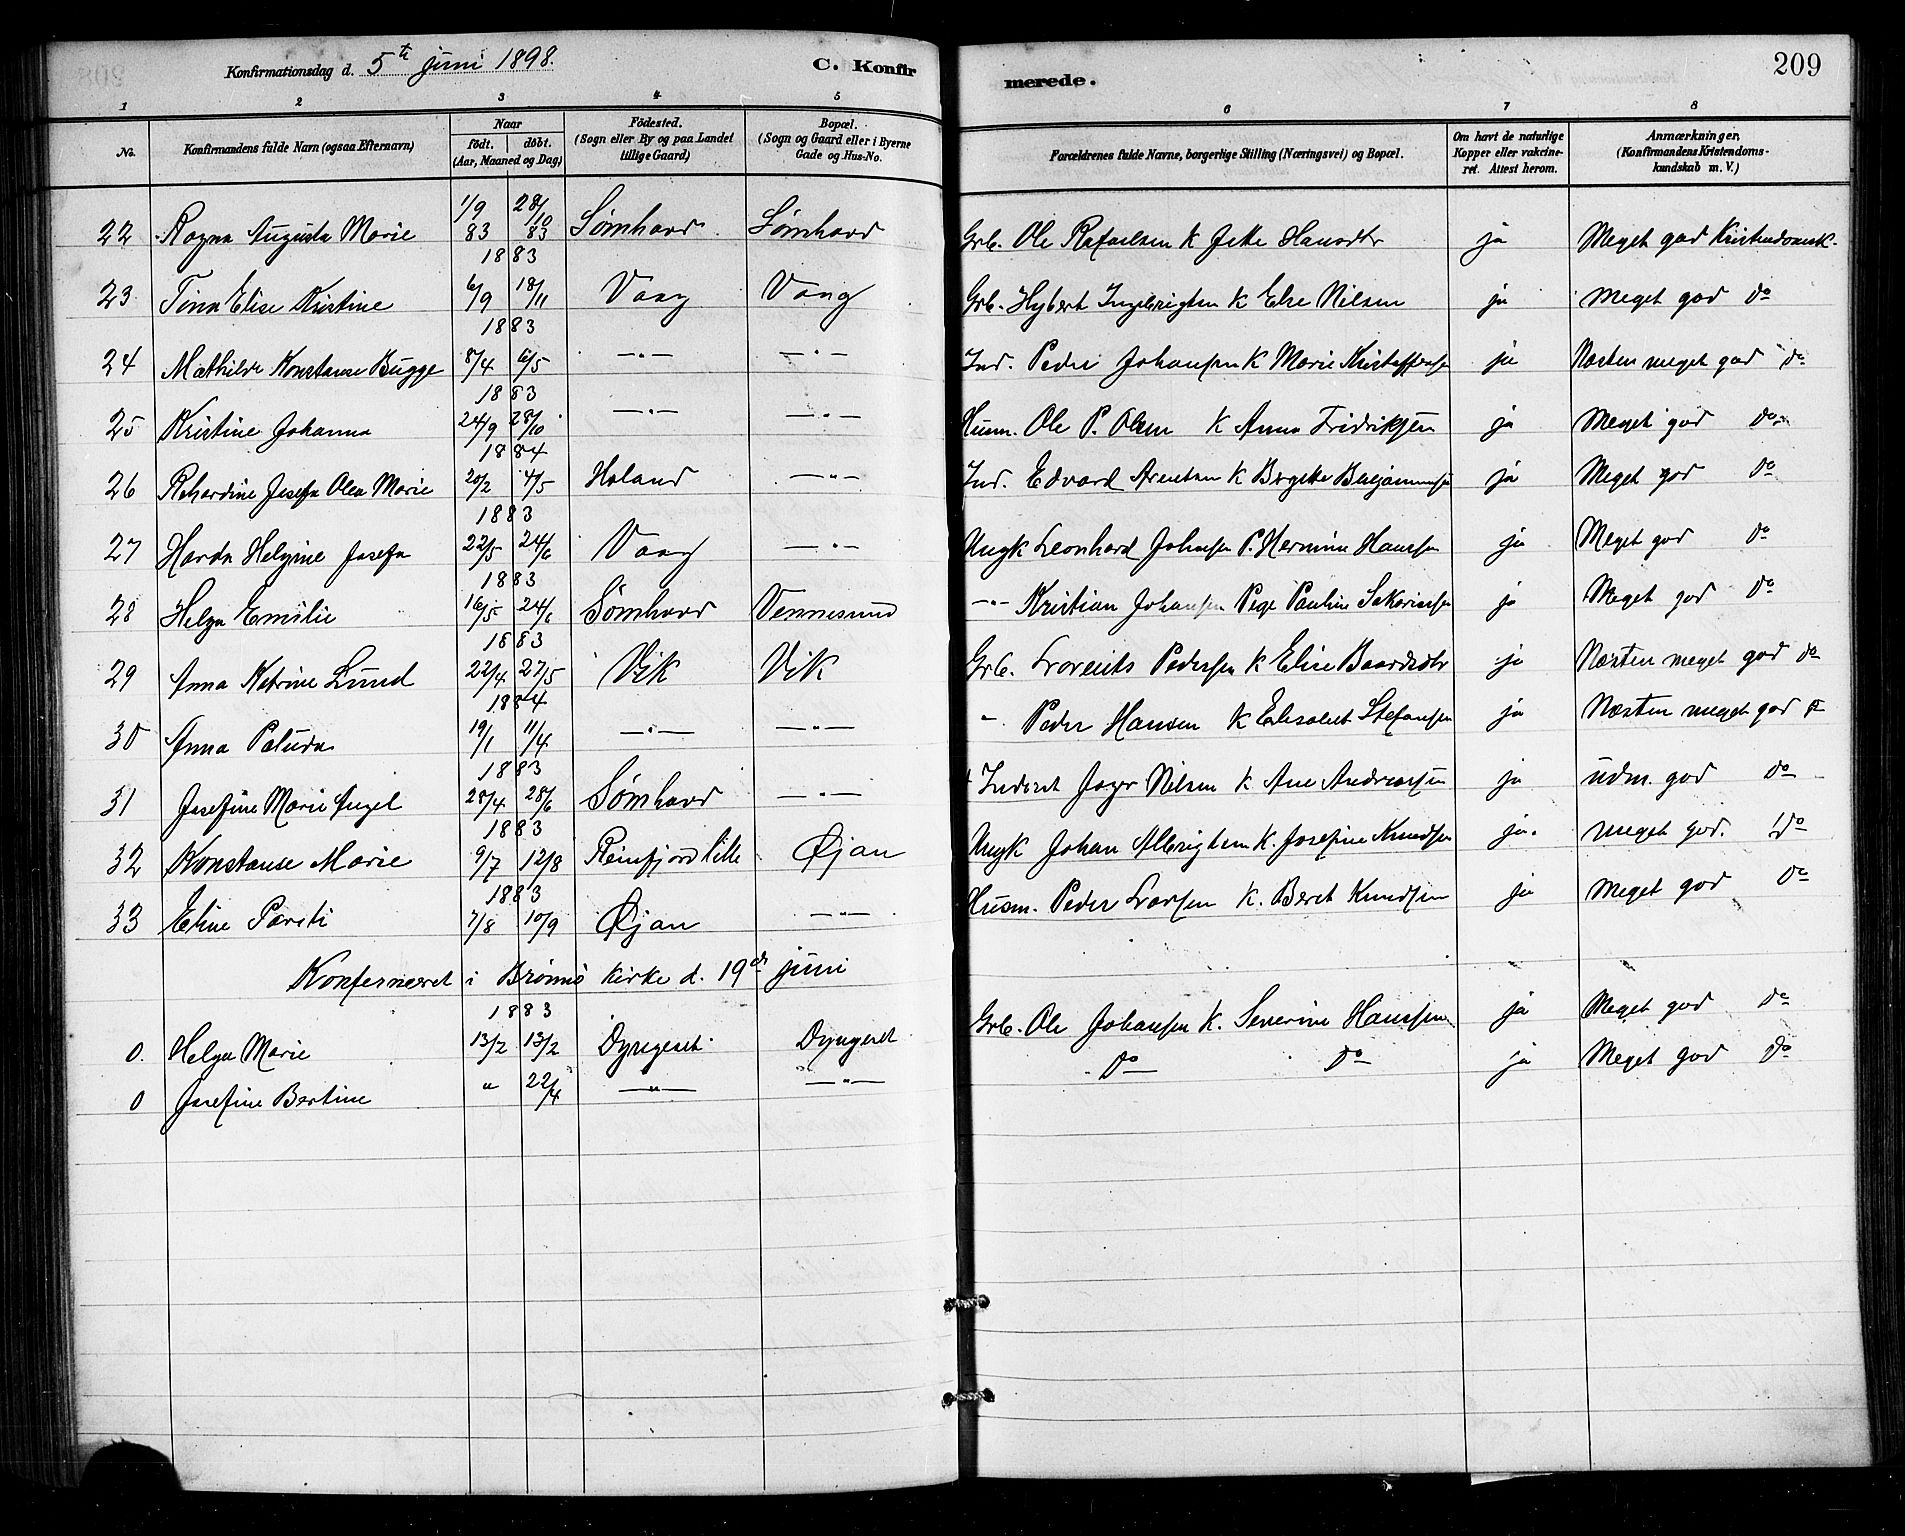 Konfirmationsdag d. 5te juni 1898.
C. Konfir
merede.
209
1 2 3 4 5 6 7 8
No.
Konfirmandens fulde Navn (ogsaa Efternavn)
Naar
födt. döbt.
(Aar, Maaned og Dag)
Födested.
(Sogn eller By og paa Landet
tillige Gaard)
Bopæl.
(Sogn og Gaard eller i Byerne
Gade og Hus-No.
Forældrenes fulde Navne, borgerlige Stilling (Næringsvei) og Bopæl.
Om havt de naturlige
Kopper eller vakcine-
ret. Attest herom.
Anmærkninger,
(Konfirmandens Kristendoms-
kundskab m. V.)
22 Ragna Augusta Marie 1/9 83 28/10 83 Sømhavd Sømhavd Grb. Ole Rafaelsen K Jette Hansdtr ja Meget god Kristendomsk.
1883
23 Tina Elise Kristine 6/9 18/11 Vaag Vaag Grb. Hybert Ingebrigtsen K Else Nilsen ja Meget god do
1883
24 Mathilde Konstanse Bugge 8/4 6/5 —"— —"— Ind. Peder Johansen K Marie Kristoffersen ja Næsten meget god do
1883
25 Kristine Johanna 24/9 28/10 —"— —"— Husm. Ole P. Olsen K Anna Fridriksen ja Meget god do
1884
26 Rikardine Josefa Olea Marie 20/2 4/5 Holand —"— Ind. Edvard Arentsen K Birgitte Benjaminsen ja Meget god do
1883
27 Harda Helgine Josefa 22/5 24/6 Vaag —"— Ungk Leonhard Johnsen P. Hermine Hansen ja Meget god do
1883
28 Helga Emilie 16/5 24/6 Sømhavd Vennesund —"— Kristian Johansen Pige Pauline Sakariasen ja Meget god do
1883
29 Anna Katrine Lund 22/4 27/5 Vik Vik Grb. Lorents Pedersen K Elise Baardsdtr ja Næsten meget god do
1884
30 Anna Paluda 19/1 11/4 —"— —"— " Peder Hansen K Elisabet Stefansen ja Næsten meget god do
1883
31 Josefine Marie Angel 28/4 28/6 Sømhavd —"— Inderst Jager Nilsen K Ane Andreassen ja udm. god do
1883
32 Konstanse Marie 9/7 12/8 Reinfjord lille Øjan Ungk Johan Albrigtsen K. Josefine Knudsen ja. meget god. do
1883
33 Eline Parsti 7/8 10/9 Øjan —"— Husm. Peder Larsen K. Beret Knudsen ja Meget god do
Konfermeret i Brønnø kirke d. 19de juni
1883
0. Helga Marie 13/2 13/2 Dyngeset Dyngeset Grb. Ole Johansen K. Severine Hanssen ja Meget god do
0 Josefine Bertine " 22/4 —"— —"— do do ja Meget god do